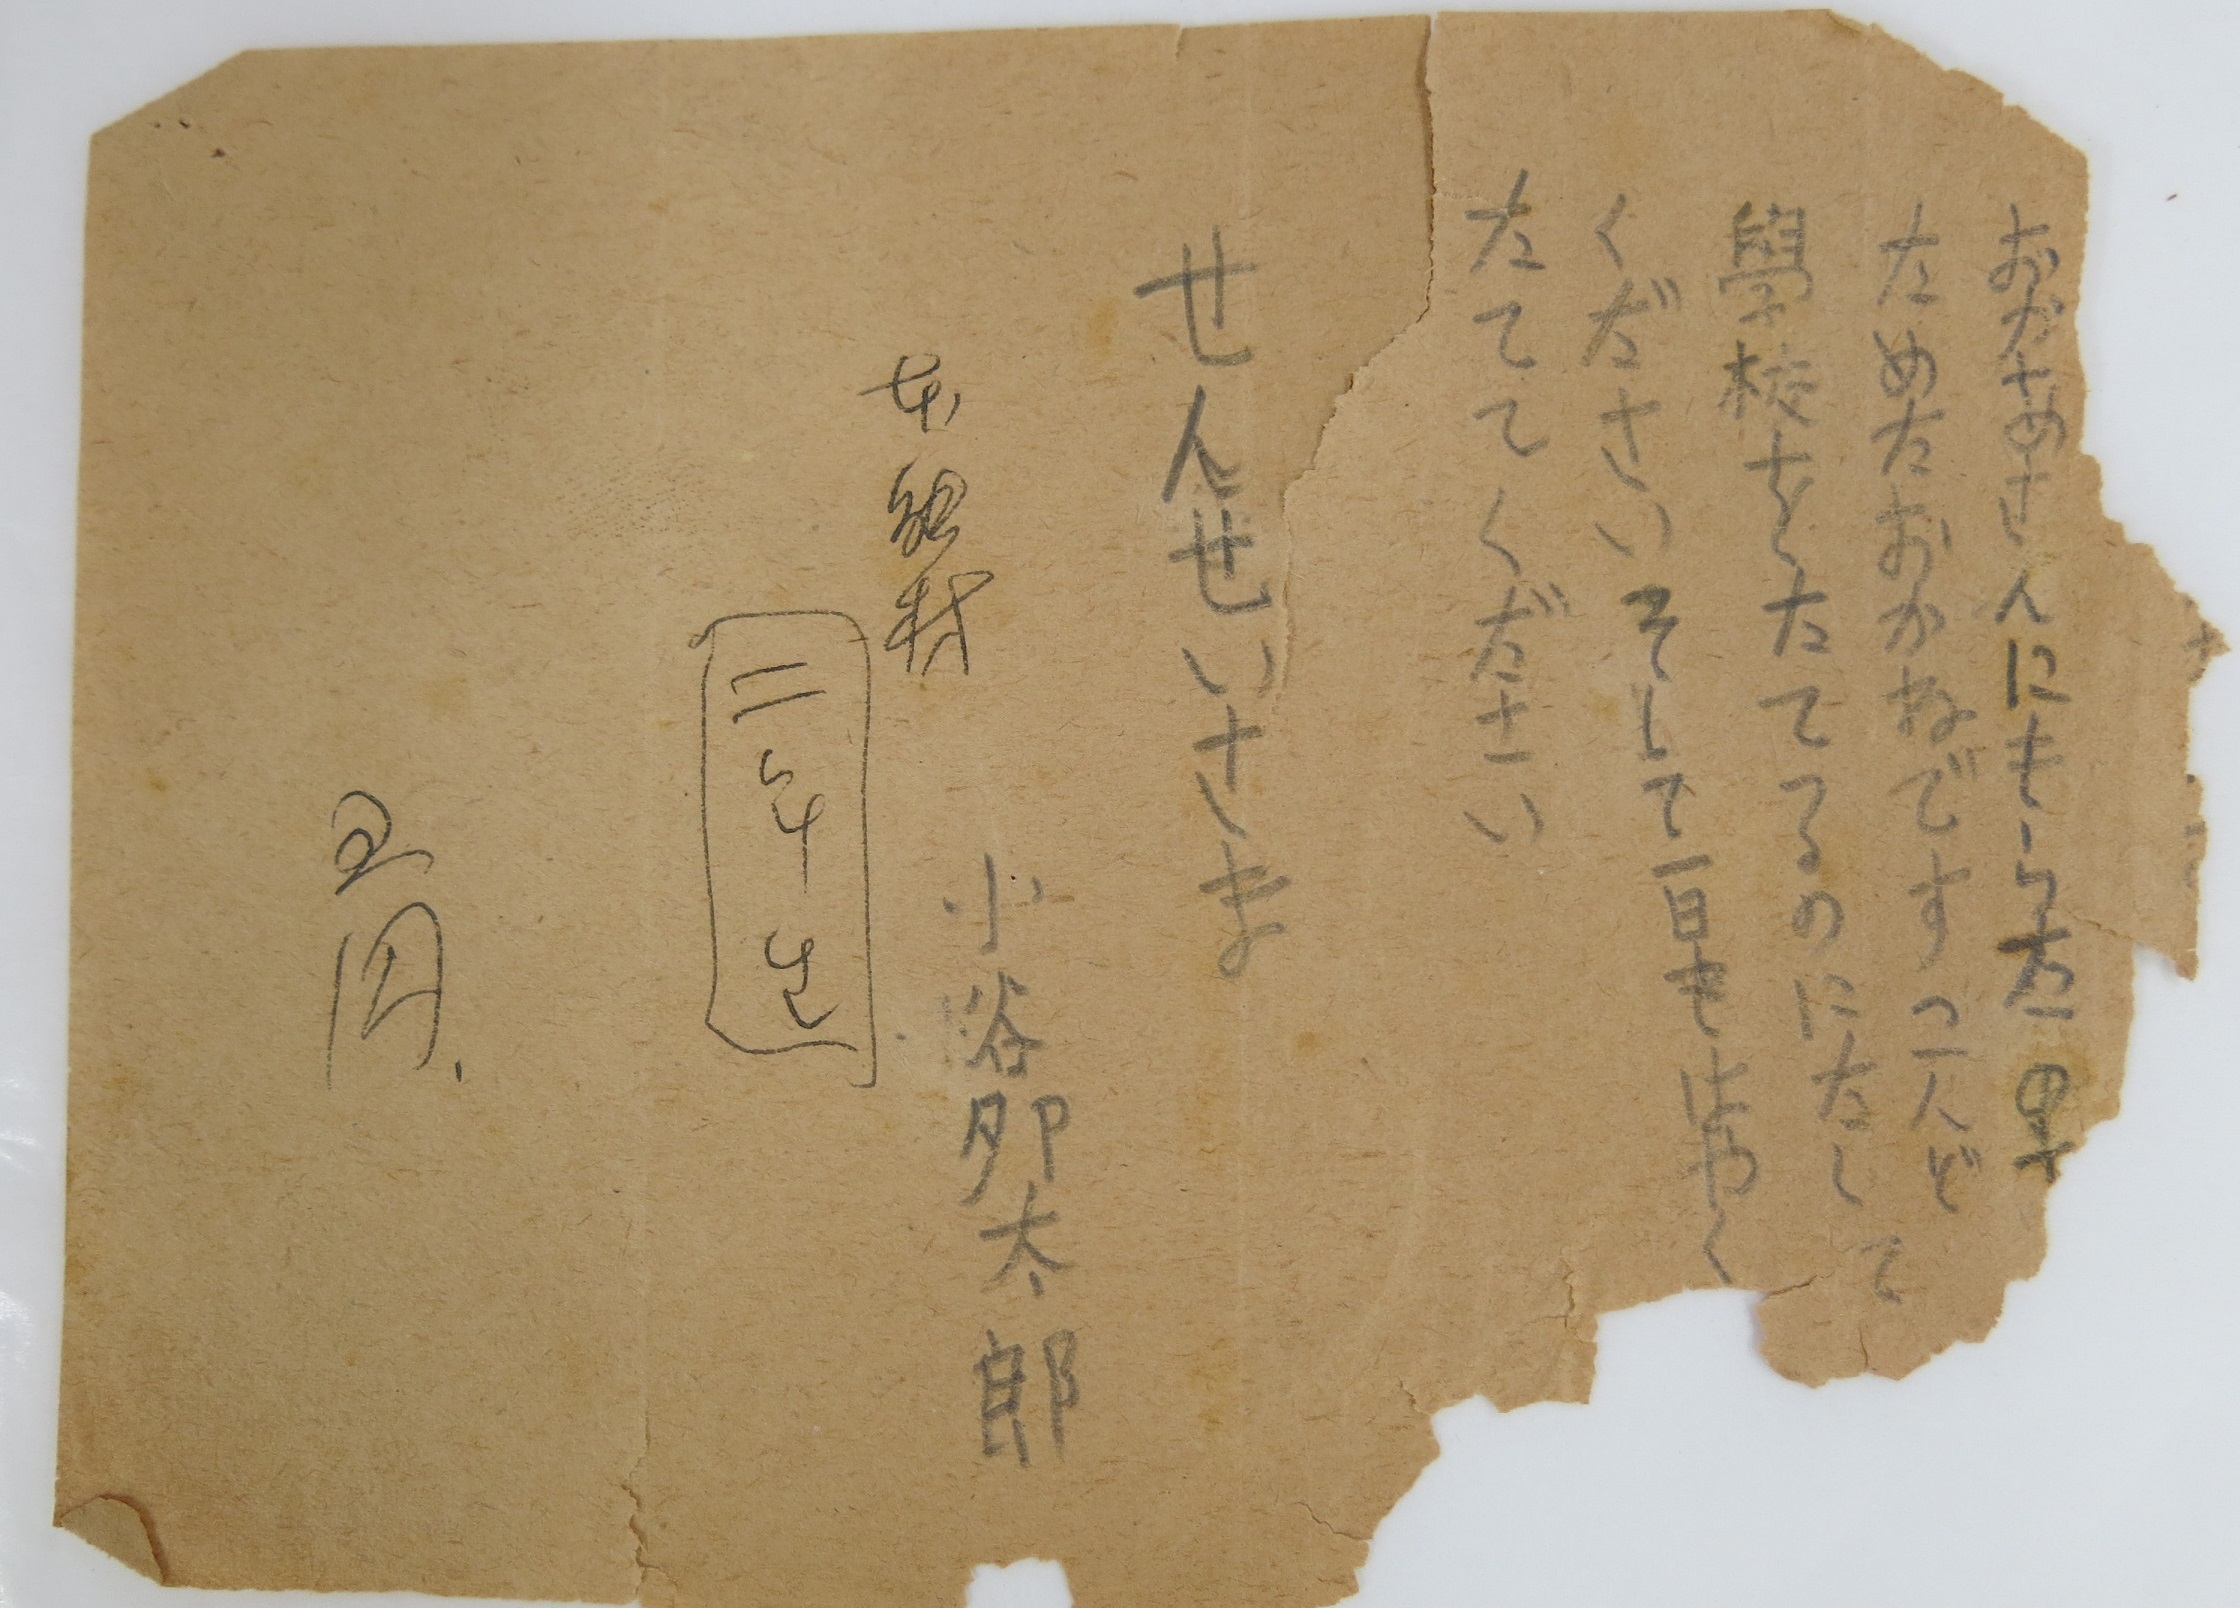 おかあさんにもらた
ためたおかねです
學校をたててるのにたして
くださいそして一日もはやく
たててください
せんせいさま
小谷卯太郎
二年生
五円.